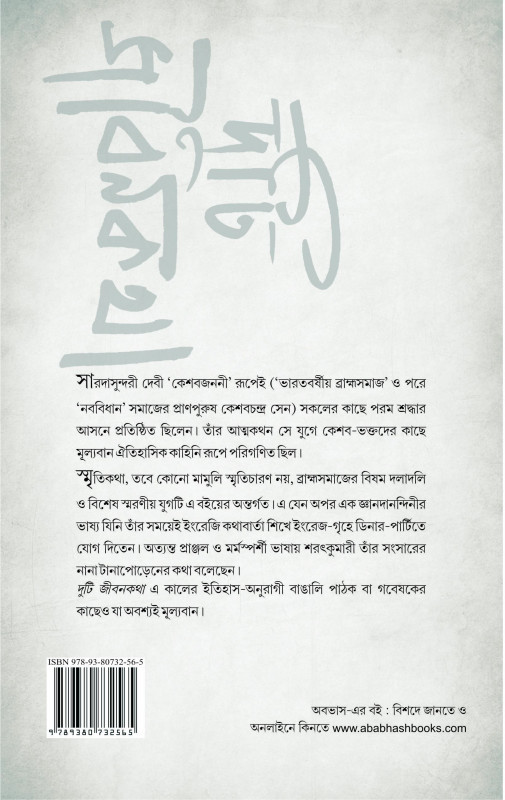 দুটি
জীবনকথা
সারদাসুন্দরী দেবী ‘কেশবজননী’ রূপেই (‘ভারতবর্ষীয় ব্রাহ্মসমাজ’ ও পরে
‘নববিধান’ সমাজের প্রাণপুরুষ কেশবচন্দ্র সেন) সকলের কাছে পরম শ্রদ্ধার
আসনে প্রতিষ্ঠিত ছিলেন। তাঁর আত্মকথন সে যুগে কেশব-ভক্তদের কাছে
মূল্যবান ঐতিহাসিক কাহিনি রূপে পরিগণিত ছিল।
স্মৃতিকথা, তবে কোনো মামুলি স্মৃতিচারণ নয়, ব্রাহ্মসমাজের বিষম দলাদলি
ও বিশেষ স্মরণীয় যুগটি এ বইয়ের অন্তর্গত। এ যেন অপর এক জ্ঞানদানন্দিনীর
ভাষ্য যিনি তাঁর সময়েই ইংরেজি কথাবার্তা শিখে ইংরেজ-গৃহে ডিনার-পার্টিতে
যোগ দিতেন। অত্যন্ত প্রাঞ্জল ও মর্মস্পর্শী ভাষায় শরৎকুমারী তাঁর সংসারের
নানা টানাপোড়েনের কথা বলেছেন।
দুটি জীবনকথা এ কালের ইতিহাস-অনুরাগী বাঙালি পাঠক বা গবেষকের
কাছেও যা অবশ্যই মূল্যবান।
ISBN 978-93-80732-56-5
9 789380 732565
অবভাস-এর বই : বিশদে জানতে ও
অনলাইনে কিনতে www.ababhashbooks.com